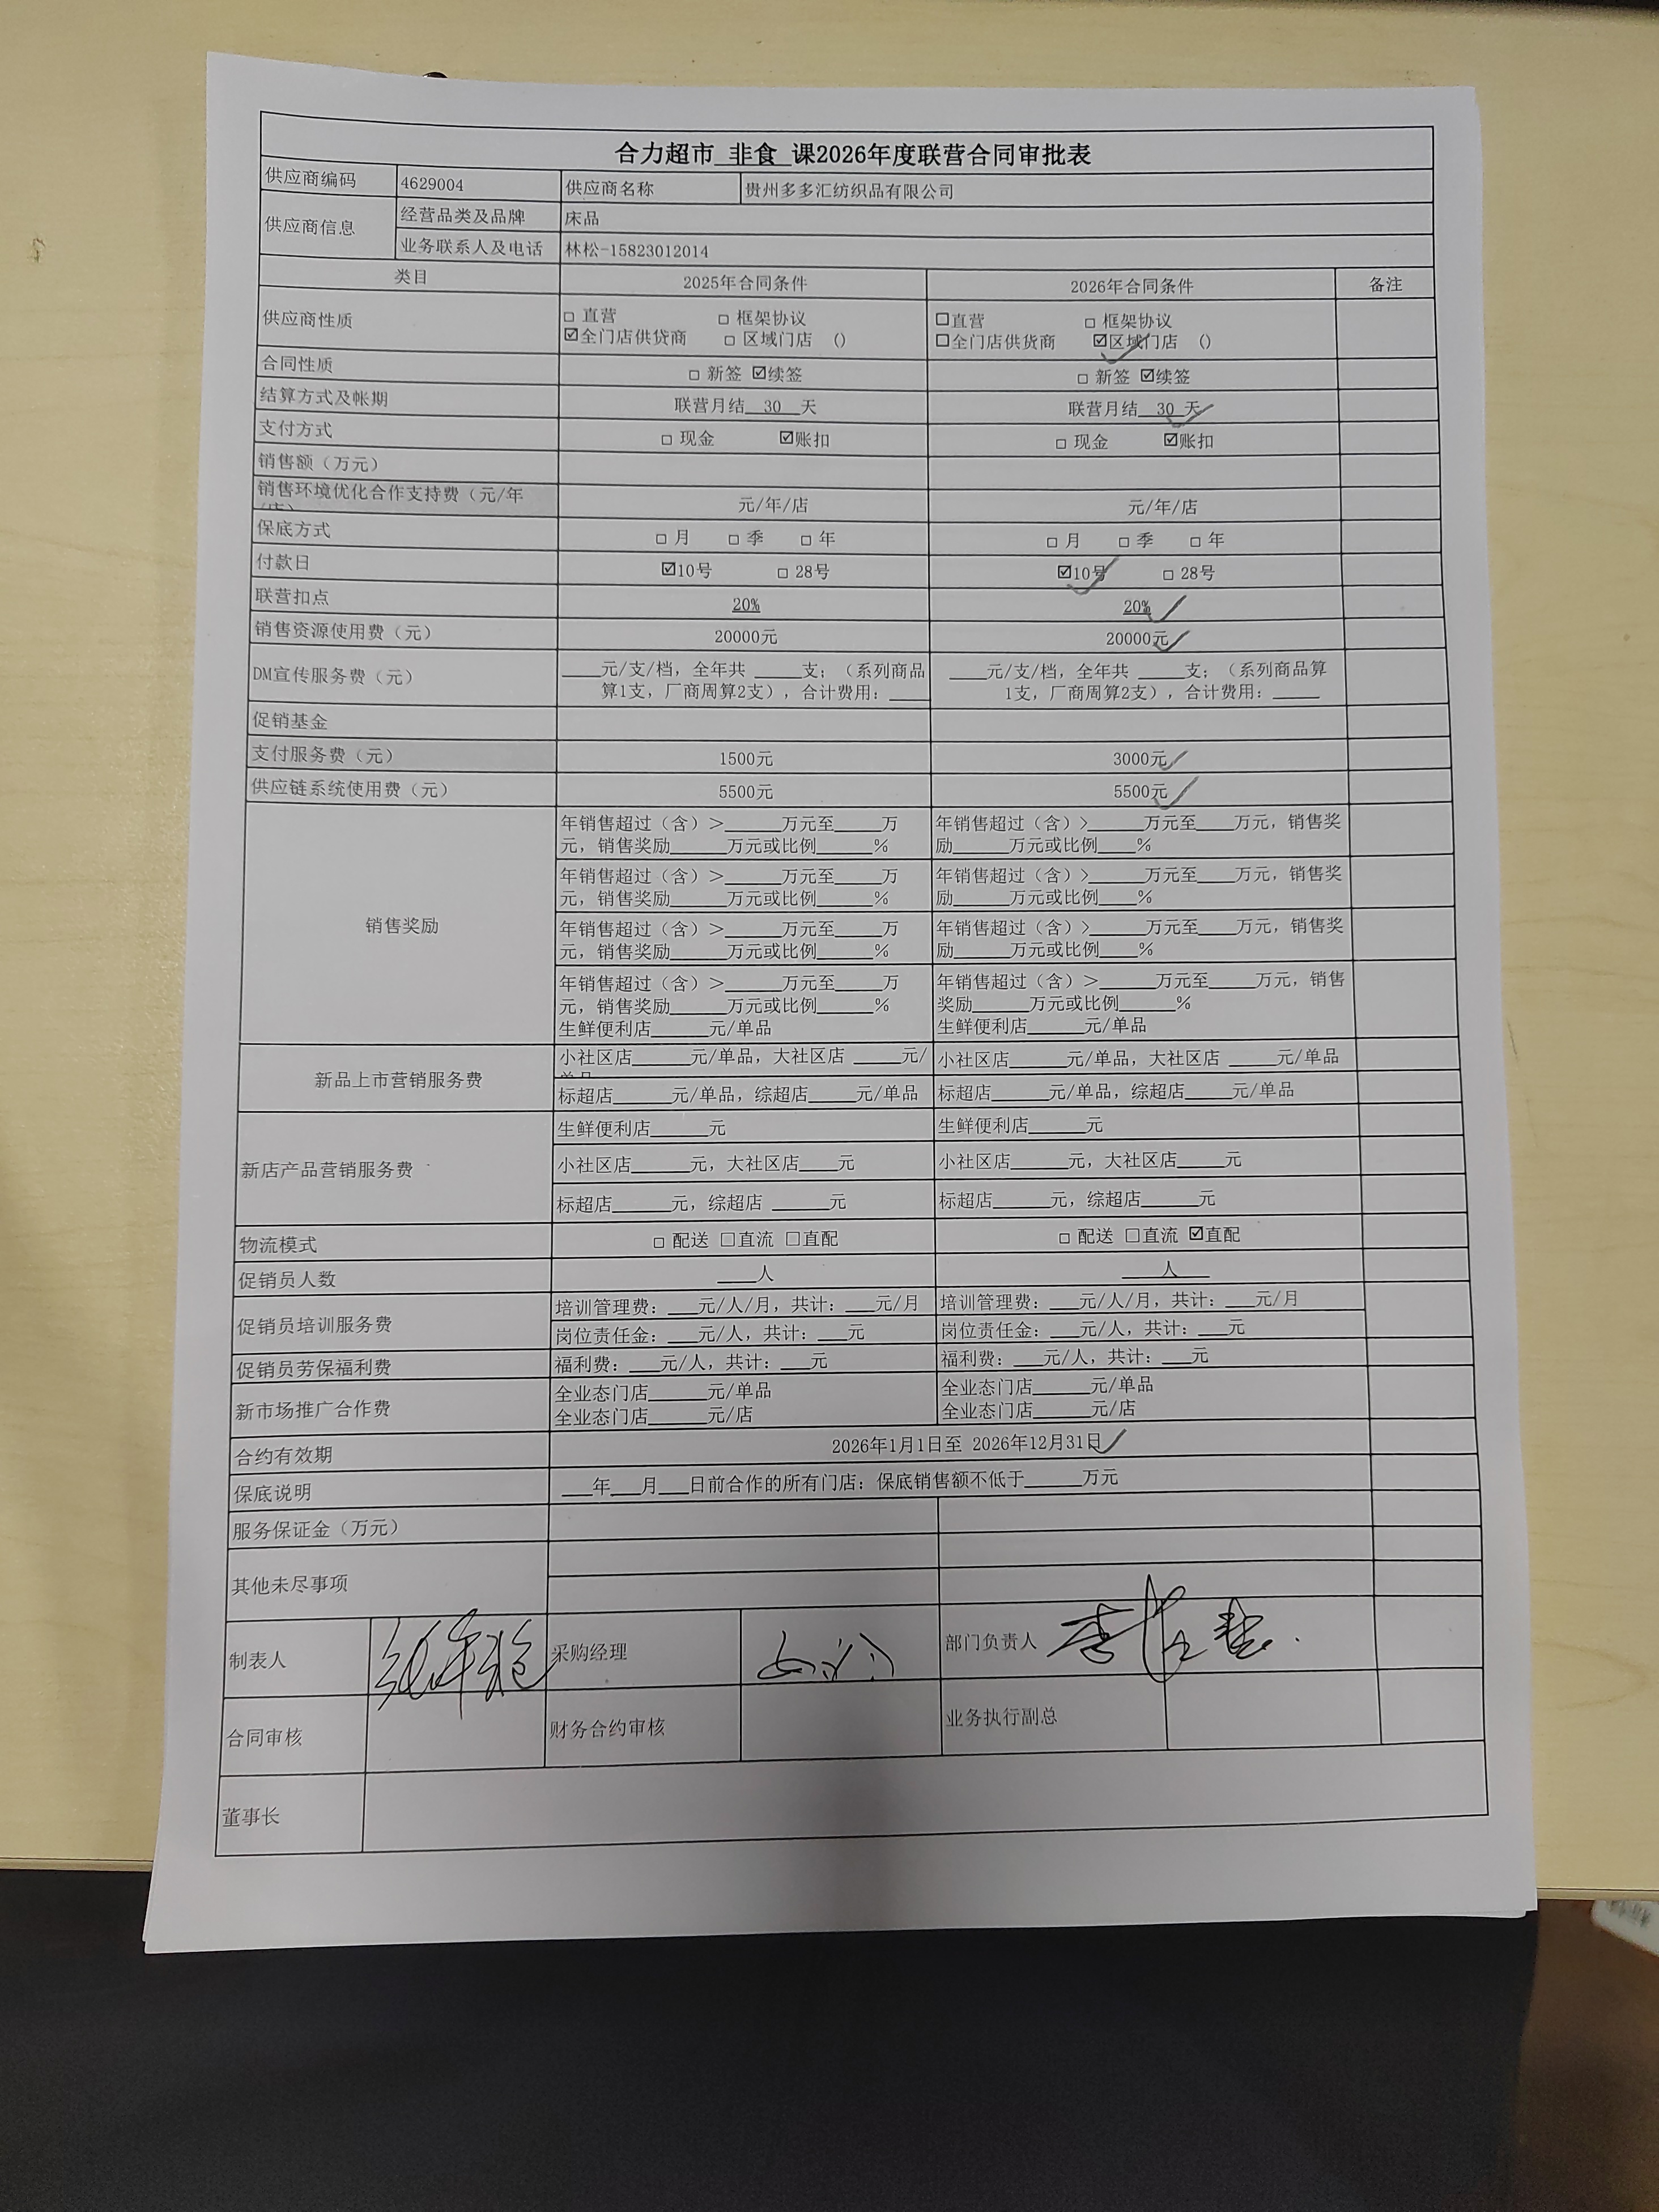 合力超市 非食 课2026年度联营合同审批表
供应商编码 4629004 供应商名称 贵州多多汇纺织品有限公司
供应商信息 经营品类及品牌 床品
业务联系人及电话 林松-15823012014
类目 2025年合同条件 2026年合同条件 备注
供应商性质 □ 直营 □ 框架协议 □直营 □ 框架协议
☑全门店供贷商 □ 区域门店 () □全门店供货商 ☑区域门店 ()
合同性质 □ 新签 ☑续签 □ 新签 ☑续签
结算方式及帐期 联营月结__30__天 联营月结__30_天
支付方式 □ 现金 ☑账扣 □ 现金 ☑账扣
销售额（万元）
销售环境优化合作支持费（元/年/店） 元/年/店 元/年/店
保底方式 □ 月 □ 季 □ 年 □ 月 □ 季 □ 年
付款日 ☑10号 □ 28号 ☑10号 □ 28号
联营扣点 20% 20%
销售资源使用费（元） 20000元 20000元
DM宣传服务费（元） ____元/支/档，全年共 _____支；（系列商品 ____元/支/档，全年共 _____支；（系列商品算
算1支，厂商周算2支），合计费用：____ 1支，厂商周算2支），合计费用：_____
促销基金
支付服务费（元） 1500元 3000元
供应链系统使用费（元） 5500元 5500元
销售奖励
年销售超过（含）＞______万元至_____万 年销售超过（含）>______万元至____万元，销售奖
元，销售奖励______万元或比例______% 励______万元或比例____%
年销售超过（含）＞______万元至_____万 年销售超过（含）>______万元至____万元，销售奖
元，销售奖励______万元或比例______% 励______万元或比例____%
年销售超过（含）＞______万元至_____万 年销售超过（含）>______万元至____万元，销售奖
元，销售奖励______万元或比例______% 励______万元或比例____%
年销售超过（含）＞______万元至_____万 年销售超过（含）＞______万元至_____万元，销售
元，销售奖励______万元或比例______% 奖励______万元或比例______%
生鲜便利店______元/单品 生鲜便利店______元/单品
新品上市营销服务费 小社区店______元/单品，大社区店 _____元/单品 小社区店______元/单品，大社区店 _____元/单品
标超店______元/单品，综超店_____元/单品 标超店______元/单品，综超店_____元/单品
新店产品营销服务费 生鲜便利店______元 生鲜便利店______元
小社区店______元，大社区店____元 小社区店______元，大社区店____元
标超店______元，综超店 ______元 标超店______元，综超店______元
物流模式 □ 配送 □直流 □直配 □ 配送 □直流 ☑直配
促销员人数 ____人 ____人___
促销员培训服务费 培训管理费：___元/人/月，共计：___元/月 培训管理费：___元/人/月，共计：___元/月
岗位责任金：___元/人，共计：___元 岗位责任金：___元/人，共计：___元
促销员劳保福利费 福利费：___元/人，共计：___元 福利费：___元/人，共计：___元
新市场推广合作费 全业态门店______元/单品 全业态门店______元/单品
全业态门店______元/店 全业态门店______元/店
合约有效期 2026年1月1日至 2026年12月31日
保底说明 ___年___月___日前合作的所有门店：保底销售额不低于______万元
服务保证金（万元）
其他未尽事项
制表人 采购经理 部门负责人
合同审核 财务合约审核 业务执行副总
董事长